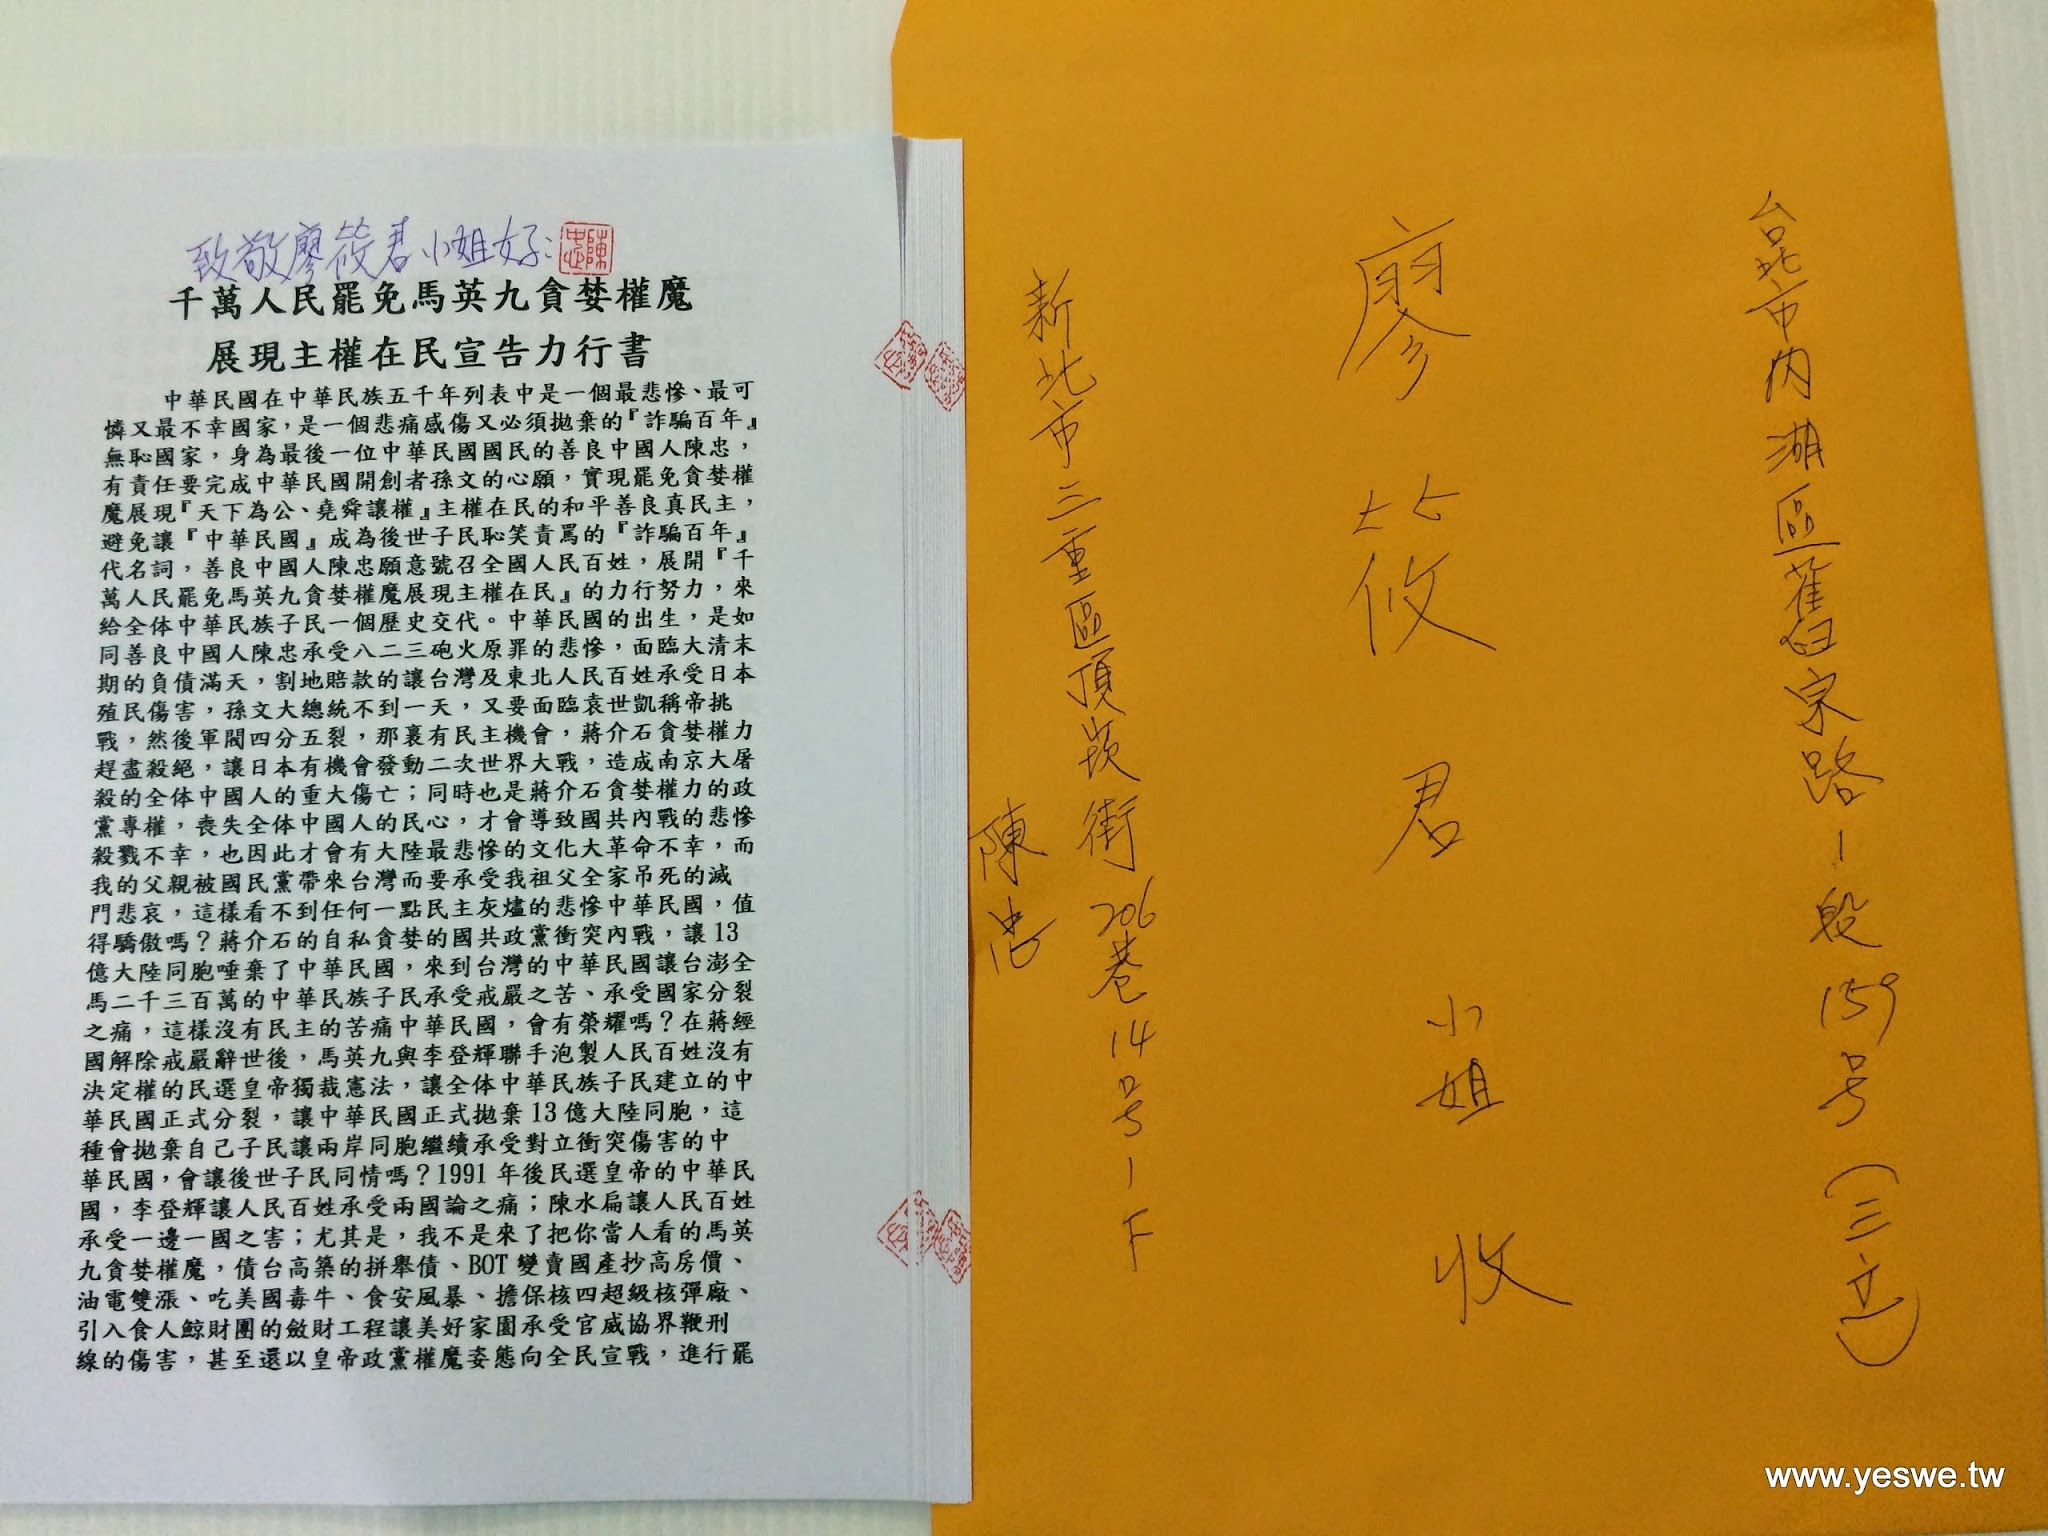 致敬廖筱君小姐好：
陳忠
千萬人民罷免馬英九貪婪權魔
展現主權在民宣告力行書
中華民國在中華民族五千年列表中是一個最悲慘、最可
憐又最不幸國家，是一個悲痛感傷又必須拋棄的『詐騙百年』
無恥國家，身為最後一位中華民國國民的善良中國人陳忠，
有責任要完成中華民國開創者孫文的心願，實現罷免貪婪權
魔展現『天下為公、堯舜讓權』主權在民的和平善良真民主，
避免讓『中華民國』成為後世子民恥笑責罵的『詐騙百年』
代名詞，善良中國人陳忠願意號召全國人民百姓，展開『千
萬人民罷免馬英九貪婪權魔展現主權在民』的力行努力，來
給全体中華民族子民一個歷史交代。中華民國的出生，是如
同善良中國人陳忠承受八二三砲火原罪的悲慘，面臨大清末
期的負債滿天，割地賠款的讓台灣及東北人民百姓承受日本
殖民傷害，孫文大總統不到一天，又要面臨袁世凱稱帝挑
戰，然後軍閥四分五裂，那裏有民主機會，蔣介石貪婪權力
趕盡殺絕，讓日本有機會發動二次世界大戰，造成南京大屠
殺的全体中國人的重大傷亡；同時也是蔣介石貪婪權力的政
黨專權，喪失全体中國人的民心，才會導致國共內戰的悲慘
殺戮不幸，也因此才會有大陸最悲慘的文化大革命不幸，而
我的父親被國民黨帶來台灣而要承受我祖父全家吊死的滅
門悲哀，這樣看不到任何一點民主灰燼的悲慘中華民國，值
得驕傲嗎？蔣介石的自私貪婪的國共政黨衝突內戰，讓13
億大陸同胞唾棄了中華民國，來到台灣的中華民國讓台澎金
馬二千三百萬的中華民族子民承受戒嚴之苦、承受國家分裂
之痛，這樣沒有民主的苦痛中華民國，會有榮耀嗎？在蔣經
國解除戒嚴辭世後，馬英九與李登輝聯手泡製人民百姓沒有
決定權的民選皇帝獨裁憲法，讓全体中華民族子民建立的中
華民國正式分裂，讓中華民國正式拋棄13億大陸同胞，這
種會拋棄自己子民讓兩岸同胞繼續承受對立衝突傷害的中
華民國，會讓後世子民同情嗎？1991年後民選皇帝的中華民
國，李登輝讓人民百姓承受兩國論之痛；陳水扁讓人民百姓
承受一邊一國之害；尤其是，我不是來了把你當人看的馬英
九貪婪權魔，債台高築的拼舉債、BOT變賣國產抄高房價、
油電雙漲、吃美國毒牛、食安風暴、擔保核四超級核彈廠、
引入食人鯨財團的斂財工程讓美好家園承受官威協界鞭刑
線的傷害，甚至還以皇帝政黨權魔姿態向全民宣戰，進行罷
台北市內湖區舊宗路1段159号(三立)
廖筱君小姐收
新北市三重區頂崁街206巷14号1F
陳忠
www.yeswe.tw